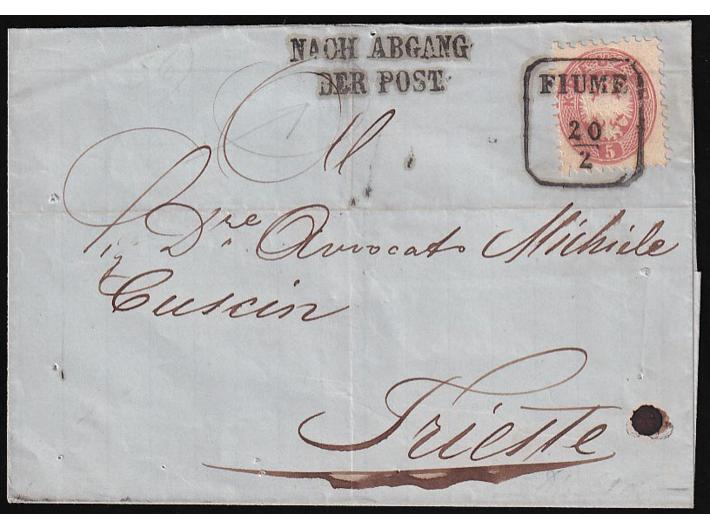 NACH ABGANG
DER POST.
FIUME
20
2
5
Al
Sig Dre Avvocato Michiele
Cuscin
Trieste